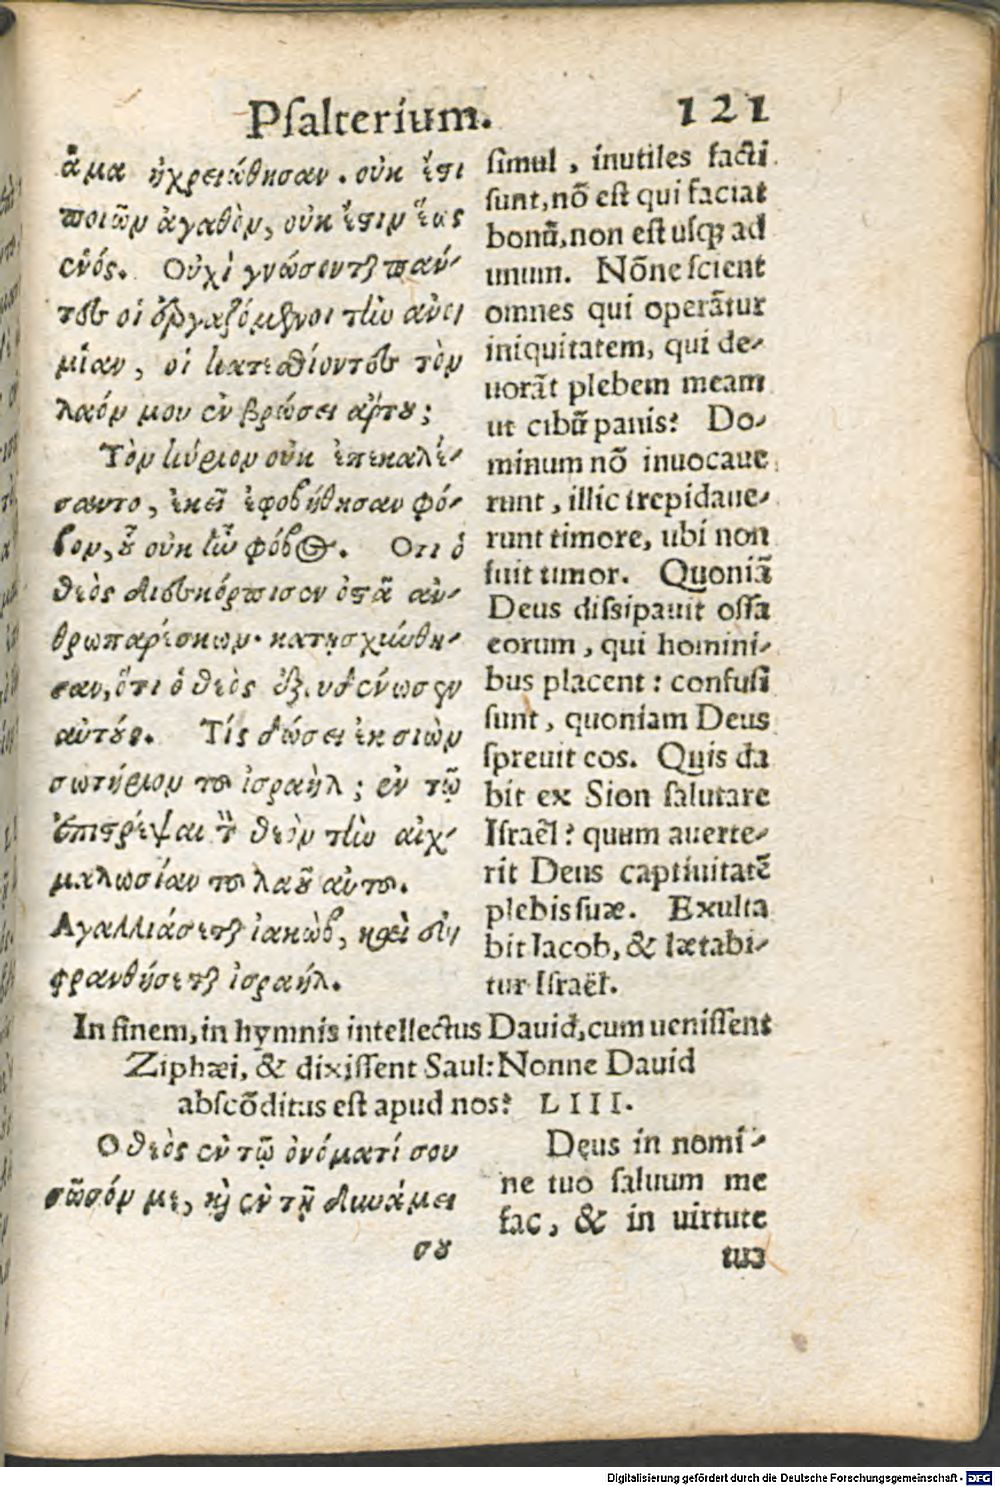 Pſalterium. 121
ἅμα ἠχρειώθησαν. οὐκ ἔστι
ποιῶν ἀγαθὸν, οὐκ ἔστιν ἕως
ἑνός. Οὐχὶ γνώσονται πάν-
τες οἱ ἐργαζόμενοι τὴν ἀνο-
μίαν, οἱ κατεσθίοντες τὸν
λαόν μου ἐν βρώσει ἄρτου;
Τὸν κύριον οὐκ ἐπεκαλέ-
σαντο, ἐκεῖ ἐφοβήθησαν φό-
βον, οὗ οὐκ ἦν φόβος. Οτι ὁ
θεὸς διεσκόρπισεν ὀστᾶ ἀν-
θρωπαρέσκων. κατῃσχύνθη-
σαν, ὅτι ὁ θεὸς ἐξουδένωσεν
αὐτούς. Τίς δώσει ἐκ σιὼν
σωτήριον τοῦ ἰσραήλ; ἐν τῷ
ἐπιστρέψαι τὸν θεὸν τὴν αἰχ-
μαλωσίαν τοῦ λαοῦ αὐτοῦ.
Αγαλλιάσεται ἰακὼβ, καὶ εὐ-
φρανθήσεται ἰσραήλ.
ſimul, inutiles facti
ſunt, nõ eſt qui faciat
bonũ, non eſt uſq; ad
unum. Nõne ſcient
omnes qui operãtur
iniquitatem, qui de-
uorãt plebem meam
ut cibũ panis? Do-
minum nõ inuocaue
runt, illic trepidaue-
runt timore, ubi non
fuit timor. Quoniã
Deus diſsipauit oſſa
eorum, qui homini-
bus placent: confuſi
ſunt, quoniam Deus
ſpreuit eos. Quis da
bit ex Sion ſalutare
Iſraël? quum auerte-
rit Deus captiuitatẽ
plebis ſuæ. Exulta
bit Iacob, & lætabi-
tur Iſraël.
In finem, in hymnis intellectus Dauid, cum ueniſſent
Ziphæi, & dixiſſent Saul: Nonne Dauid
abſcõditus eſt apud nos? LIII.
Ο θεὸς ἐν τῷ ὀνόματί σου
σῶσόν με, καὶ ἐν τῇ δυνάμει
σου
Deus in nomi-
ne tuo ſaluum me
fac, & in uirtute
tua
Digitalisierung gefördert durch die Deutsche Forschungsgemeinschaft - DFG